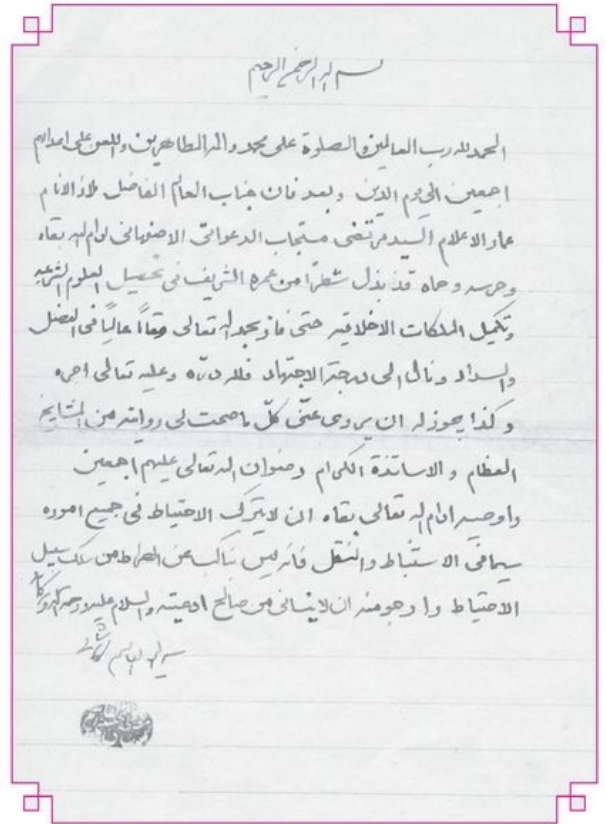 بسم الله الرحمن الرحيم
الحمد لله رب العالمين والصلوة على محمد وآله الطاهرين واللعن على اعدائهم
اجمعين الى يوم الدين وبعد فان جناب العالم الفاضل ملاذ الانام
عماد الاعلام السيد مرتضى مستجاب الدعواتى الاصفهانى ادام الله بقاه
وحرسه وحماه قد بذل شطرا من عمره الشريف فى تحصيل العلوم الشرعيه
وتكميل الملكات الاخلاقيه حتى فاز بحمد الله تعالى مقاما عاليا فى الفضل
والسداد ونال الى درجة الاجتهاد فلله درّه وعليه تعالى اجره
وكذا يجوز له ان يروى عنّى كلّ ما صحت لى روايته من المشايخ
العظام والاساتذة الكرام رضوان الله تعالى عليهم اجمعين
واوصيه ادام الله تعالى بقاه ان لا يترك الاحتياط فى جميع اموره
سيما فى الاستنباط والنقل فانه ليس بناكب عن الصراط من سلك سبيل
الاحتياط وارجو منه ان لا ينسانى من صالح ادعيته والسلام عليه ورحمة الله وبركاته